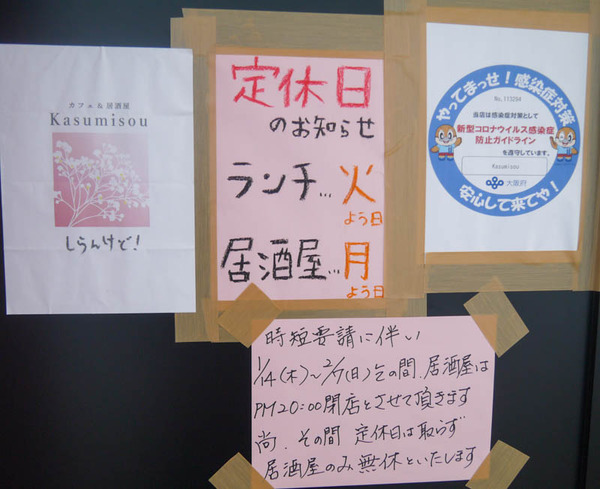 カフェ&居酒屋
Kasumisou
しらんけど!
定休日
のお知らせ
ランチ…火
よう日
居酒屋…月
よう日
やってまっせ!感染症対策
No. 113284
当店は感染症対策として
新型コロナウイルス感染症
防止ガイドライン
を遵守しています。
Kasumisou
大阪府
安心して来てや!
時短要請に伴い
1/14(木)~2/7(日)迄の間、居酒屋は
PM20:00閉店とさせて頂きます
尚、その間 定休日は取らず
居酒屋のみ無休といたします